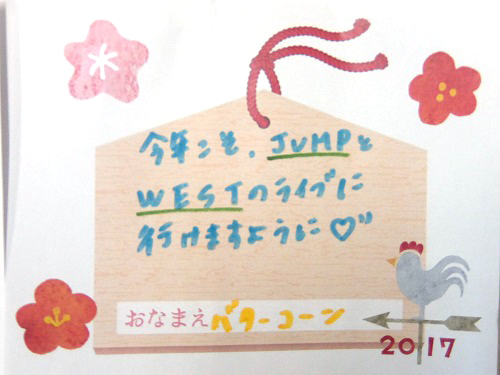 今年こそ、JUMPと
WESTのライブに
行けますように♡"
おなまえ バターコーン
2017